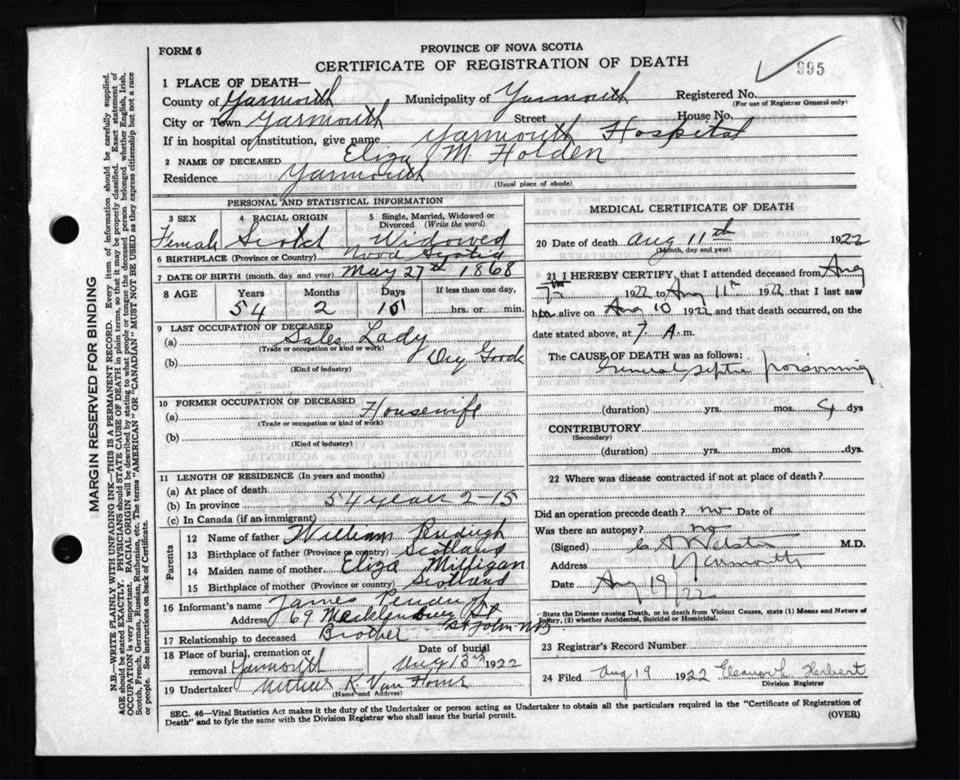 FORM 6
PROVINCE OF NOVA SCOTIA
CERTIFICATE OF REGISTRATION OF DEATH
995
1 PLACE OF DEATH—
County of Yarmouth Municipality of Yarmouth Registered No.
(For use of Registrar General only)
City or Town Yarmouth Street House No.
If in hospital or institution, give name Yarmouth Hospital
2 NAME OF DECEASED Eliza M Holden
Residence Yarmouth
(Usual place of abode)
PERSONAL AND STATISTICAL INFORMATION
3 SEX 4 RACIAL ORIGIN 5 Single, Married, Widowed or Divorced (Write the word)
Female Scotch Widowed
6 BIRTHPLACE (Province or Country) Nova Scotia
7 DATE OF BIRTH (month, day and year) May 27th 1868
8 AGE Years Months Days If less than one day,
54 2 15 hrs. or min.
9 LAST OCCUPATION OF DECEASED
(a) Sales Lady
(Trade or occupation or kind or work)
(b) Dry Goods
(Kind of industry)
10 FORMER OCCUPATION OF DECEASED
(a) Housewife
(Trade or occupation or kind of work)
(b)
(Kind of industry)
11 LENGTH OF RESIDENCE (In years and months)
(a) At place of death
(b) In province 54 years 2-15
(c) In Canada (if an immigrant)
Parents
12 Name of father William
13 Birthplace of father (Province or country) Scotland
14 Maiden name of mother Eliza Milligan
15 Birthplace of mother (Province or country) Scotland
16 Informant's name James
Address 69 Mecklenburg St
St John NB
17 Relationship to deceased Brother
18 Place of burial, cremation or removal Yarmouth
Date of burial Aug 13th 1922
19 Undertaker K. Van Horne
(Name and Address)
MEDICAL CERTIFICATE OF DEATH
20 Date of death Aug 11th 1922
(Month, day and year)
21 I HEREBY CERTIFY, that I attended deceased from Aug
7th 1922 to Aug 11th 1922 that I last saw
her alive on Aug 10 1922 and that death occurred, on the
date stated above, at 7 A. m.
The CAUSE OF DEATH was as follows:
General septic poisoning
(duration) yrs. mos. 4 dys
CONTRIBUTORY
(Secondary)
(duration) yrs. mos. dys.
22 Where was disease contracted if not at place of death?
Did an operation precede death? no Date of
Was there an autopsy? no
(Signed) M.D.
Address Yarmouth
Date Aug 19/22
State the Disease causing Death, or in death from Violent Causes, state (1) Means and Nature of Injury, (2) whether Accidental, Suicidal or Homicidal.
23 Registrar's Record Number
24 Filed Aug 19 1922 Herbert
Division Registrar
SEC. 46—Vital Statistics Act makes it the duty of the Undertaker or person acting as Undertaker to obtain all the particulars required in the "Certificate of Registration of
Death" and to fyle the same with the Division Registrar who shall issue the burial permit. (OVER)
MARGIN RESERVED FOR BINDING
N.B.—WRITE PLAINLY WITH UNFADING INK—THIS IS A PERMANENT RECORD. Every item of information should be carefully supplied.
AGE should be stated EXACTLY. PHYSICIANS should STATE CAUSE OF DEATH in plain terms, so that it may be properly classified. Exact statement of
OCCUPATION is very important. RACIAL ORIGIN will be described by stating to what people or tongue the deceased person belonged, whether English, Irish,
Scotch, French, German, Russian, Ruthenian, etc. The terms "AMERICAN" OR "CANADIAN" MUST NOT BE USED as they express citizenship but not a race
or people. See instructions on back of Certificate.